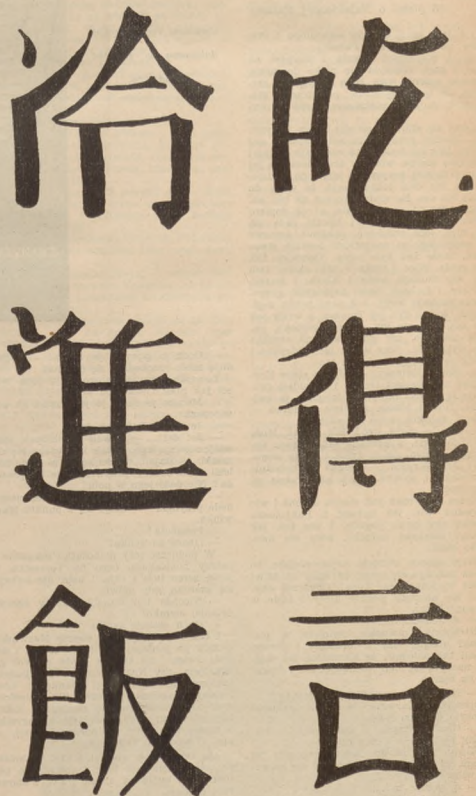 吃得言
冷進飯